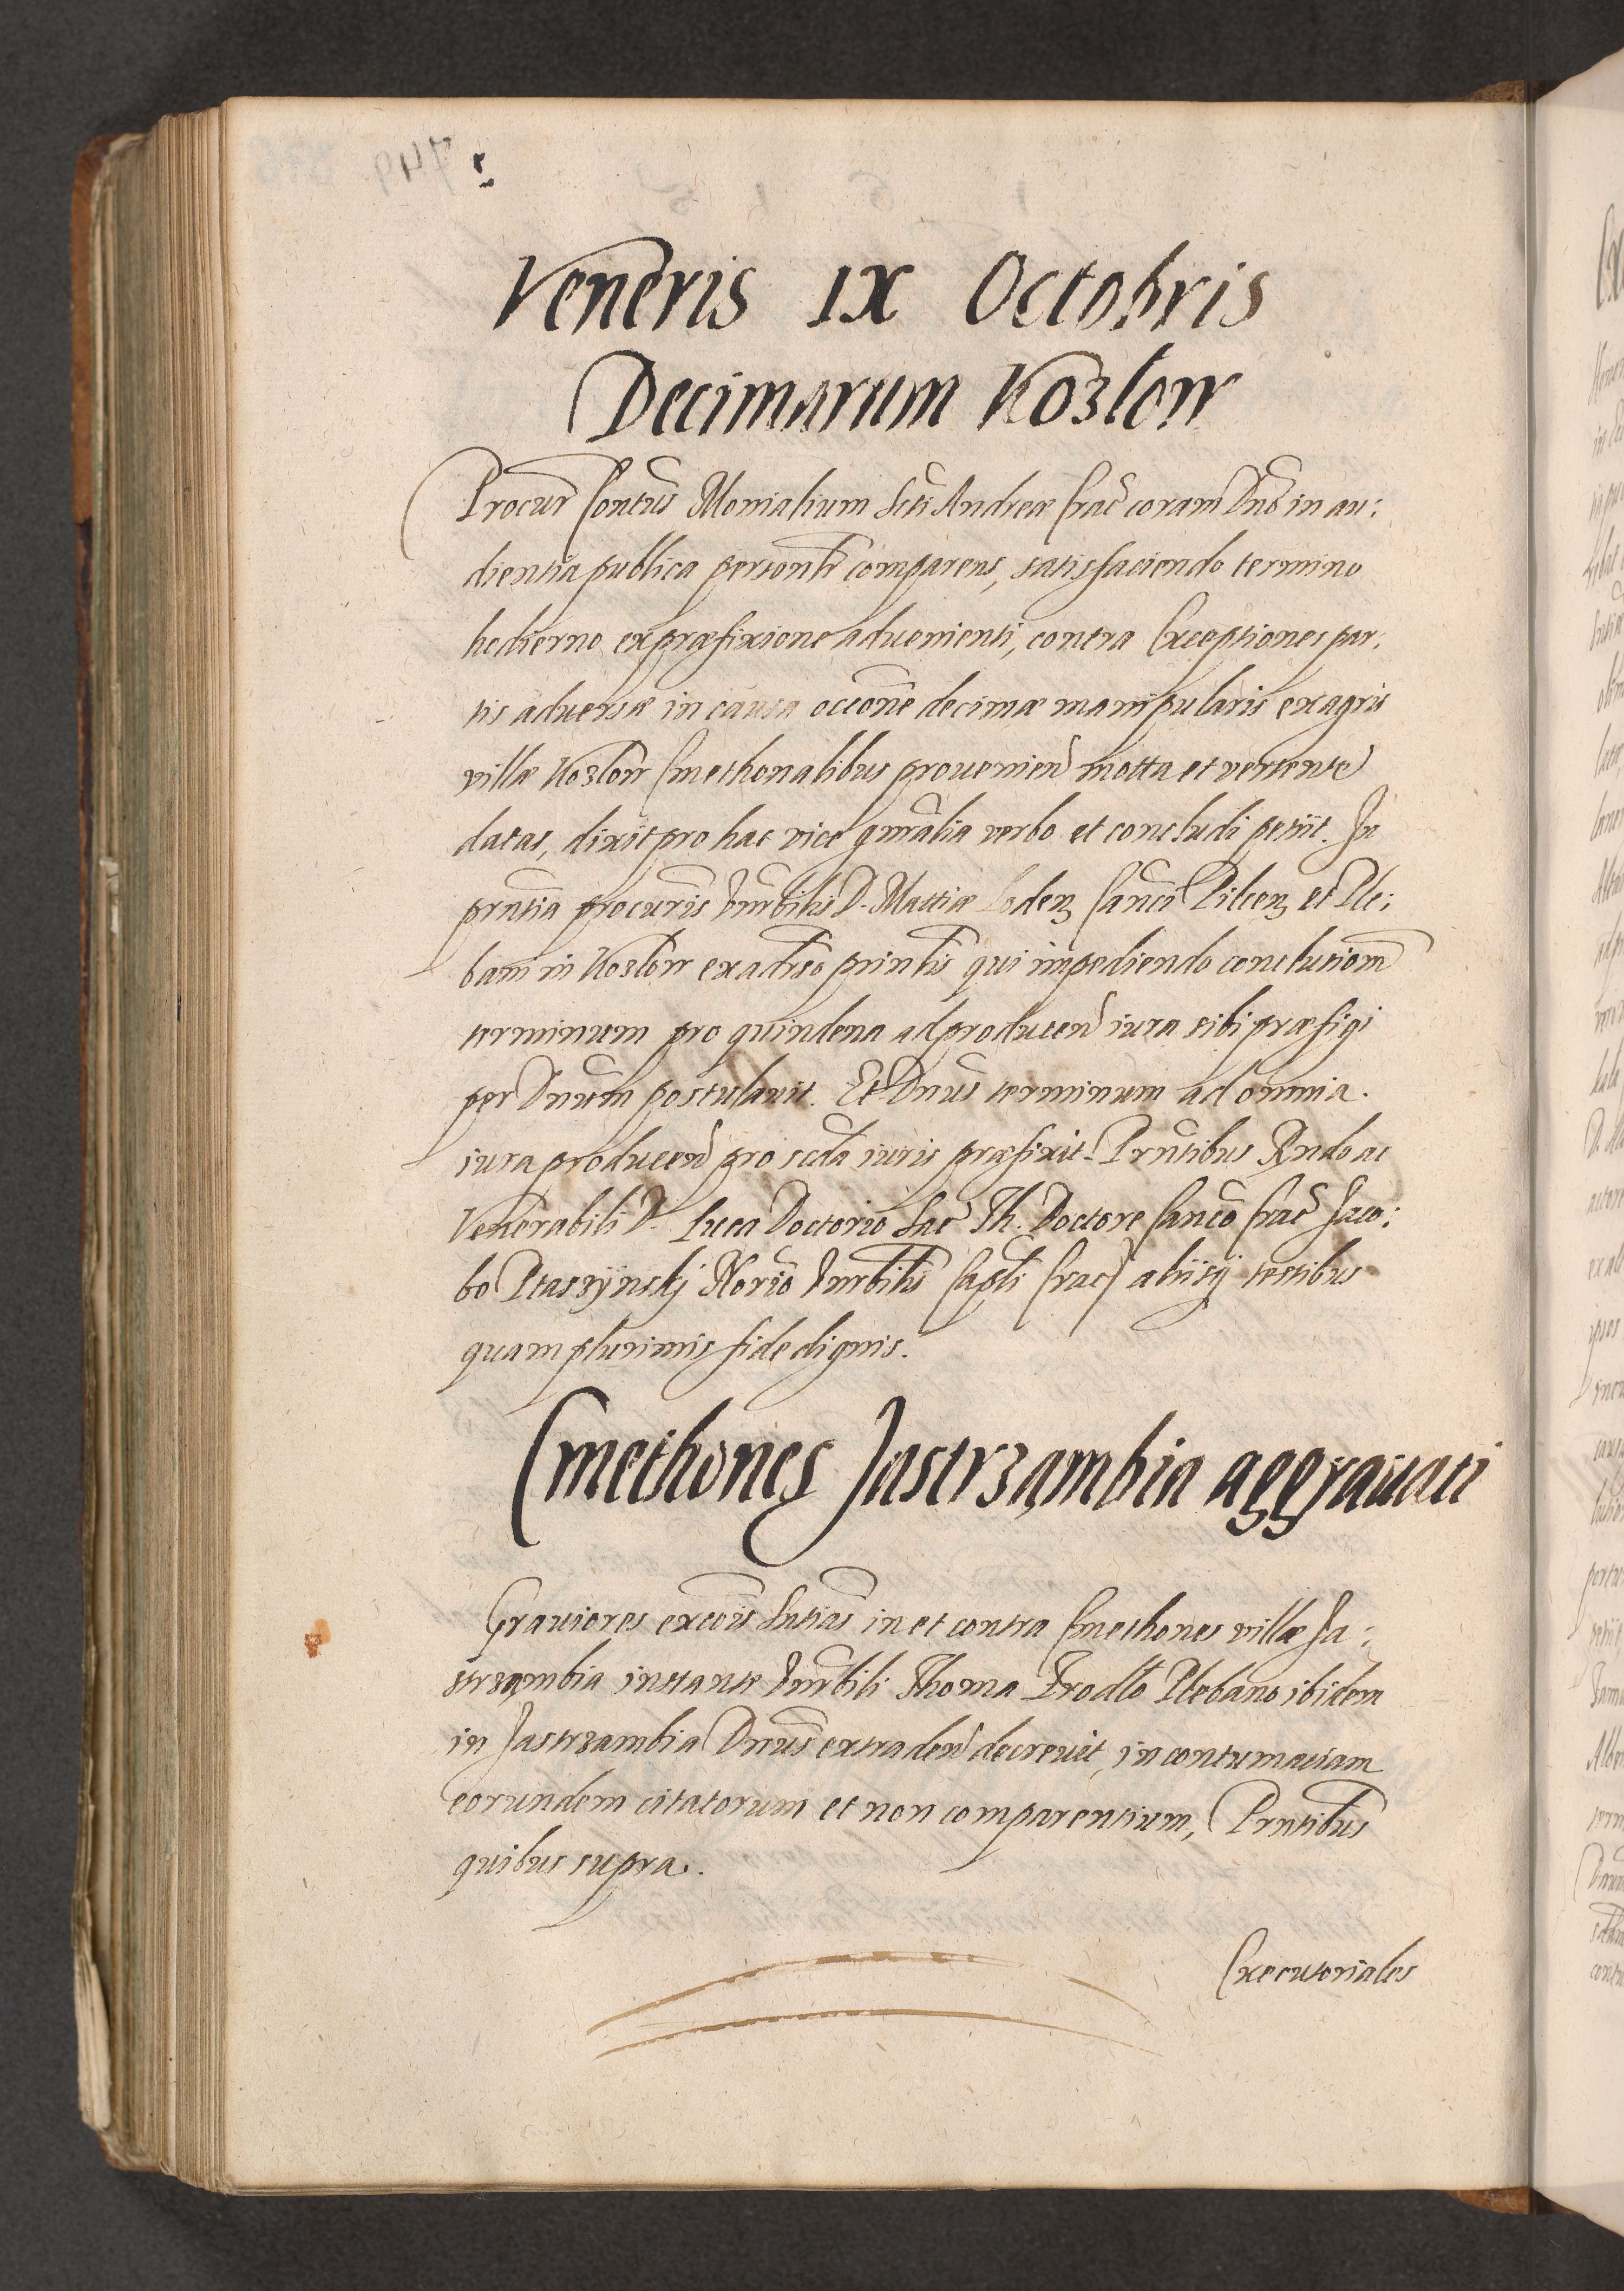 Veneris IX Octobris
Decimarum Kozlow
Procur Contus Monialium Scti Andreæ Crac coram Dno in au:
dientia publica personlr comparens, satisfaciendo termino
hodierno ex præfixione aduenienti, contra Exceptiones par:
tis aduersæ in causa occone decimæ manipularis ex agris
villæ Kozlow Cmethonalibus prouenien motta et vertente
datas, dixit pro hac vice gnralia verbo et concludi petiit. In
prntia procuris Vnrbilis D. Mattiæ Canci Pilcen et Ple:
bani in Kozlow ex aduso prinlis qui impediendo conclusionem
terminum pro quindena ad producen iura sibi præfigi
per Dnum postulauit. Et Dnus terminum ad omnia
iura producen pro scda iuris præfixit. Prntibus Rndo ac
Venerabili D. Luca Doctorio Sac Th. Doctore Canco Crac Jaco:
bo Ptaszÿnskj Norio Vnrbilis Capli Crac aliisq testibus
quam plurimis fide dignis.
Cmethones Jastrząmbia aggrauati
Grauiores excois Sntias in et contra Cmethones villæ Ja:
strząmbia instante Vnrbili Thoma Plebano ibidem
in Jastrzambia Dnus extraden decreuit, in contumaciam
eorundem citatorum et non comparentium, Prntibus
quibus supra.
Executoriales